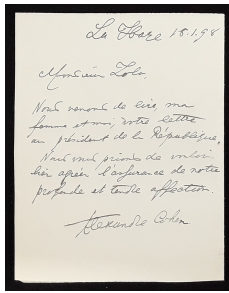 La Haye 15.1.98
Monsieur Zola,
Nous venons de lire, ma
femme et moi, votre lettre
au président de la République.
Nous vous prions de vouloir
bien agréer l'assurance de notre
profonde et tendre affection.
Alexandre Cohen